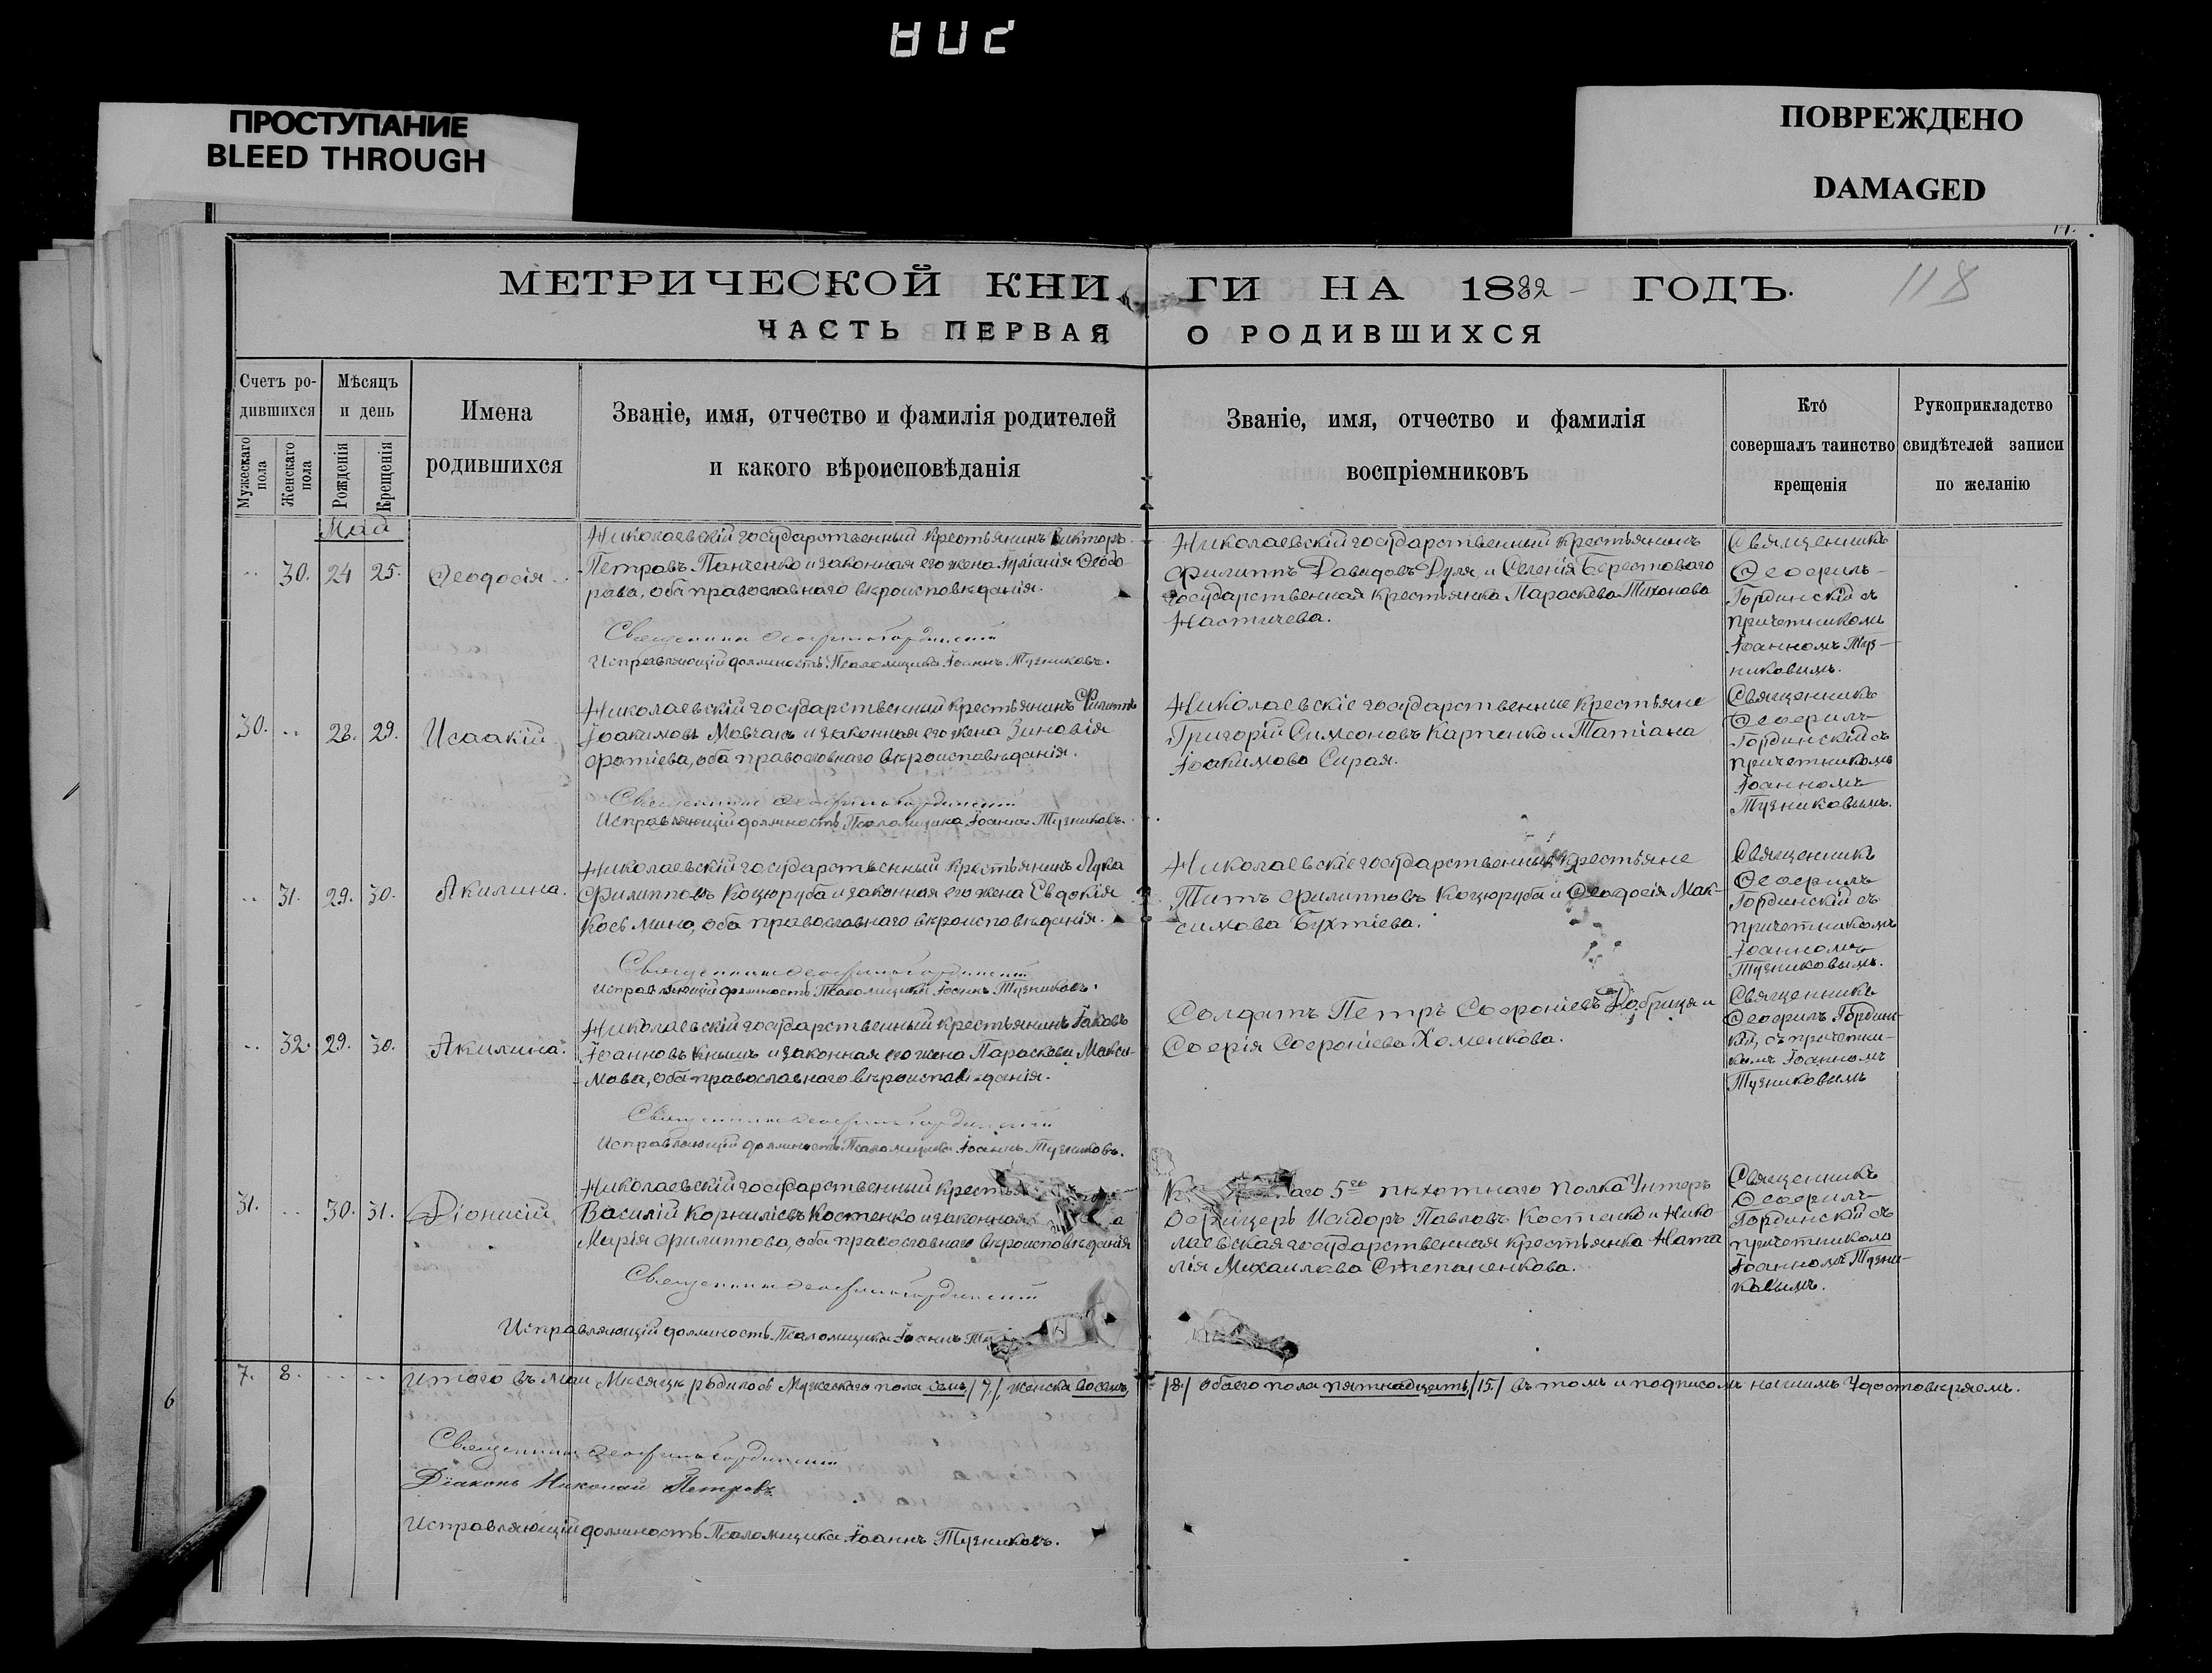 ПРОСТУПАНИЕ
BLEED THROUGH
ПОВРЕЖДЕНО
DAMAGED
118
МЕТРИЧЕСКОЙ КНИ ГИ НА 1882 ГОДЪ.
ЧАСТЬ ПЕРВАЯ О РОДИВШИХСЯ
Счетъ родившихся
Мужескаго пола
Женскаго пола
Мѣсяцъ и день
Рожденія
Крещенія
Имена
родившихся
Званіе, имя, отчество и фамилія родителей
и какого вѣроисповѣданія
Званіе, имя, отчество и фамилія
воспріемниковъ
Кто
совершалъ таинство
крещенія
Рукоприкладство
свидѣтелей записи
по желанію
Мая
30. 24 25. Ѳеодосія.
Николаевскій государственный крестьянинъ Викторъ
Петровъ Панченко и законная его жена Іуліанія Ѳеодо
рова, оба православнаго вѣроисповѣданія.
Священникъ Ѳеофилъ Гординскій
Исправляющій должность Псаломщика Іоаннъ Тузниковъ.
Николаевскій государственный крестьянинъ
Филиппъ Давидовъ Дуля и Селенія Берестоваго
государственная крестьянка Параскева Тихонова
Настичева.
Священникъ
Ѳеофилъ
Гординскій съ
причетникомъ
Іоанномъ Туз-
никовымъ.
30. 28. 29. Исаакій
Николаевскій государственный крестьянинъ Филиппъ
Іоакимовъ Мовчанъ и законная его жена Зиновія
Фотіева, оба православнаго вѣроисповѣданія.
Священникъ Ѳеофилъ Гординскій
Исправляющій должность Псаломщика Іоаннъ Тузниковъ.
Николаевскіе государственные крестьяне
Григорій Симеоновъ Карпенко и Татіана
Іоакимова Сирая.
Священникъ
Ѳеофилъ
Гординскій съ
причетникомъ
Іоанномъ
Тузниковымъ.
31. 29. 30. Акилина.
Николаевскій государственный крестьянинъ Лука
Филипповъ Коцюруба и законная его жена Евдокія
Косьмина, оба православнаго вѣроисповѣданія.
Священникъ Ѳеофилъ Гординскій
Исправляющій должность Псаломщика Іоаннъ Тузниковъ.
Николаевскіе государственные крестьяне
Титъ Филипповъ Коцюруба и Ѳеодосія Мак-
симова Бухтіева.
Священникъ
Ѳеофилъ
Гординскій съ
причетникомъ
Іоанномъ
Тузниковымъ.
32. 29. 30. Акилина.
Николаевскій государственный крестьянинъ Іаковъ
Іоанновъ Кнышъ и законная его жена Параскева Макси-
мова, оба православнаго вѣроисповѣданія.
Священникъ Ѳеофилъ Гординскій
Исправляющій должность Псаломщика Іоаннъ Тузниковъ.
Солдатъ Петръ Софроніевъ Добрица и
Софія Софроніева Хоменкова.
Священникъ
Ѳеофилъ Гординс-
кій, съ причетни-
комъ Іоанномъ
Тузниковымъ
31. 30. 31. Діонисій
Николаевскій государственный крестья
Василій Корниліевъ Костенко и законная
Марія Филиппова, оба православнаго вѣроисповѣданія
Священникъ Ѳеофилъ Гординскій
Исправляющій должность Псаломщика Іоаннъ Туз
аго 5го пѣхотнаго полка Унтеръ
Офицеръ Исидоръ Павловъ Костенко и Нико
лаевская государственная крестьянка Ната
лія Михаилова Степаненкова.
Священникъ
Ѳеофилъ
Гординскій съ
причетникомъ
Іоанномъ Тузни-
ковымъ.
7. 8. Итого въ Маи Мѣсяцѣ родилось Мужескаго пола семь /7/ женска восемь /8/ обоего пола пятнадцать /15/ въ томъ и подписомъ нашимъ Удостовѣряемъ.
Священникъ Ѳеофилъ Гординскій
Діаконъ Николай Петровъ.
Исправляющій должность Псаломщика Іоаннъ Тузниковъ.
6